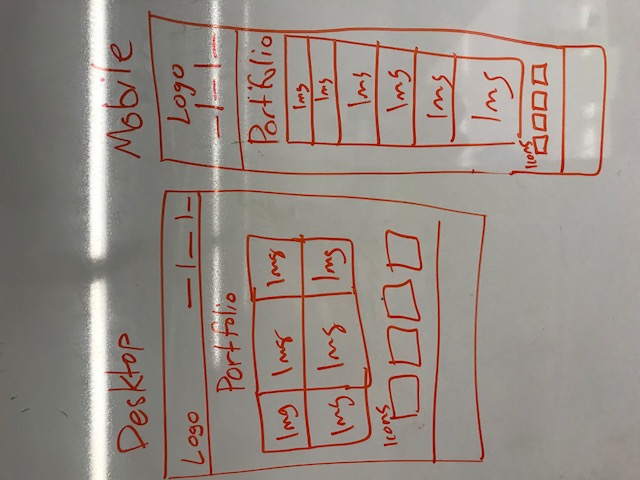 Desktop
Logo — | — | —
Portfolio
Img Img Img
Img Img Img
Icons
Mobile
Logo
— | — | —
Portfolio
Img
Img
Img
Img
Img
Img
Icons